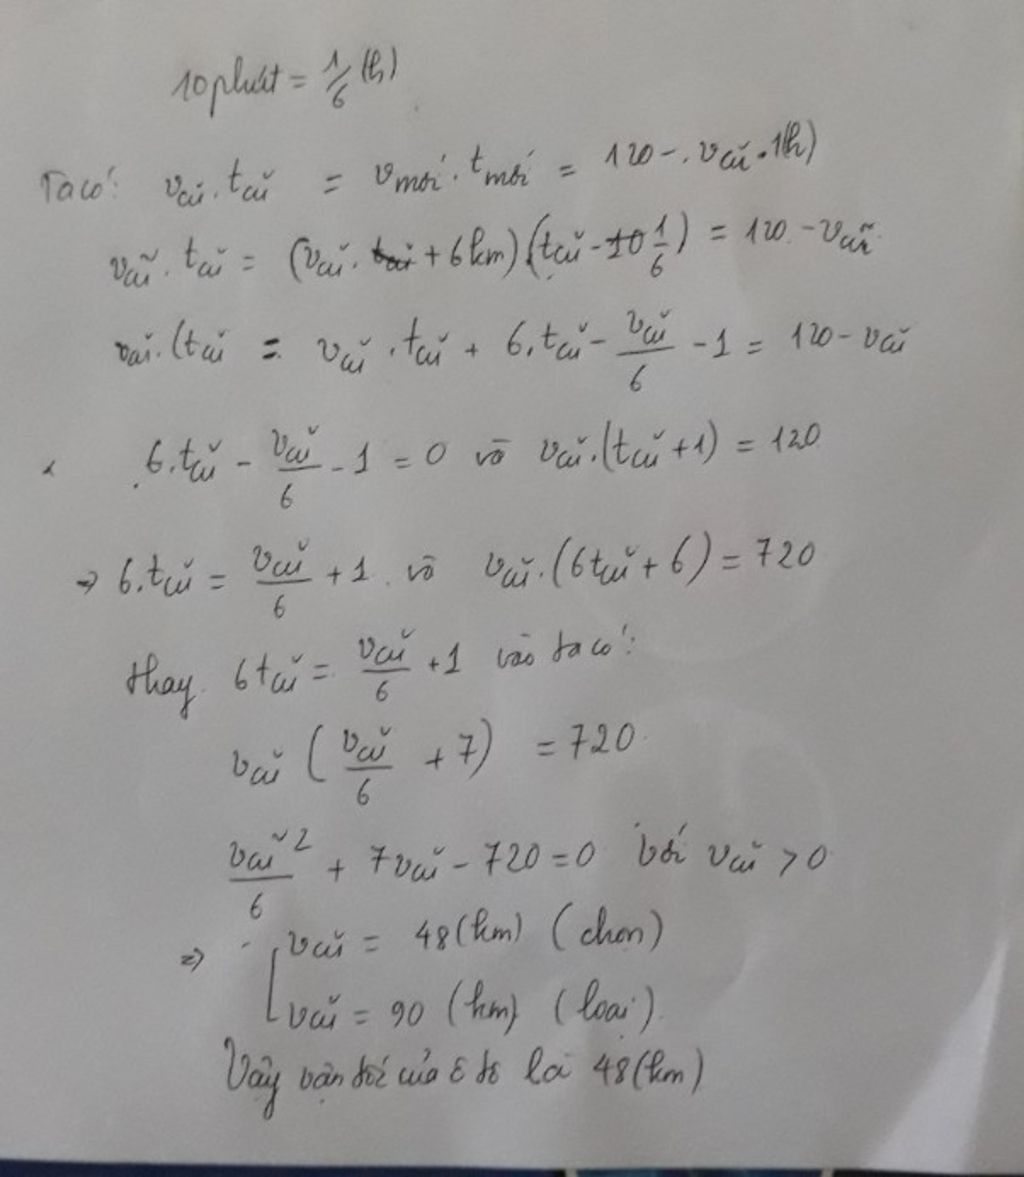 10 phút = 1/6 (h)
Ta có: vcũ . tcũ = vmới . tmới = 120 - . vcũ . 1(h)
vcũ . tcũ = (vcũ . + 6km)(tcũ - 10 1/6) = 120 - vcũ
vcũ . (tcũ = vcũ . tcũ + 6.tcũ - vcũ/6 - 1 = 120 - vcũ
6.tcũ - vcũ/6 - 1 = 0 và vcũ.(tcũ + 1) = 120
→ 6.tcũ = vcũ/6 + 1 và vcũ.(6tcũ + 6) = 720
thay 6tcũ = vcũ/6 + 1 vào ta có:
vcũ (vcũ/6 + 7) = 720
vcũ²/6 + 7vcũ - 720 = 0 với vcũ > 0
=> [ vcũ = 48 (km) (chọn)
vcũ = 90 (km) (loại).
Vậy vận tốc của ô tô là 48 (km)